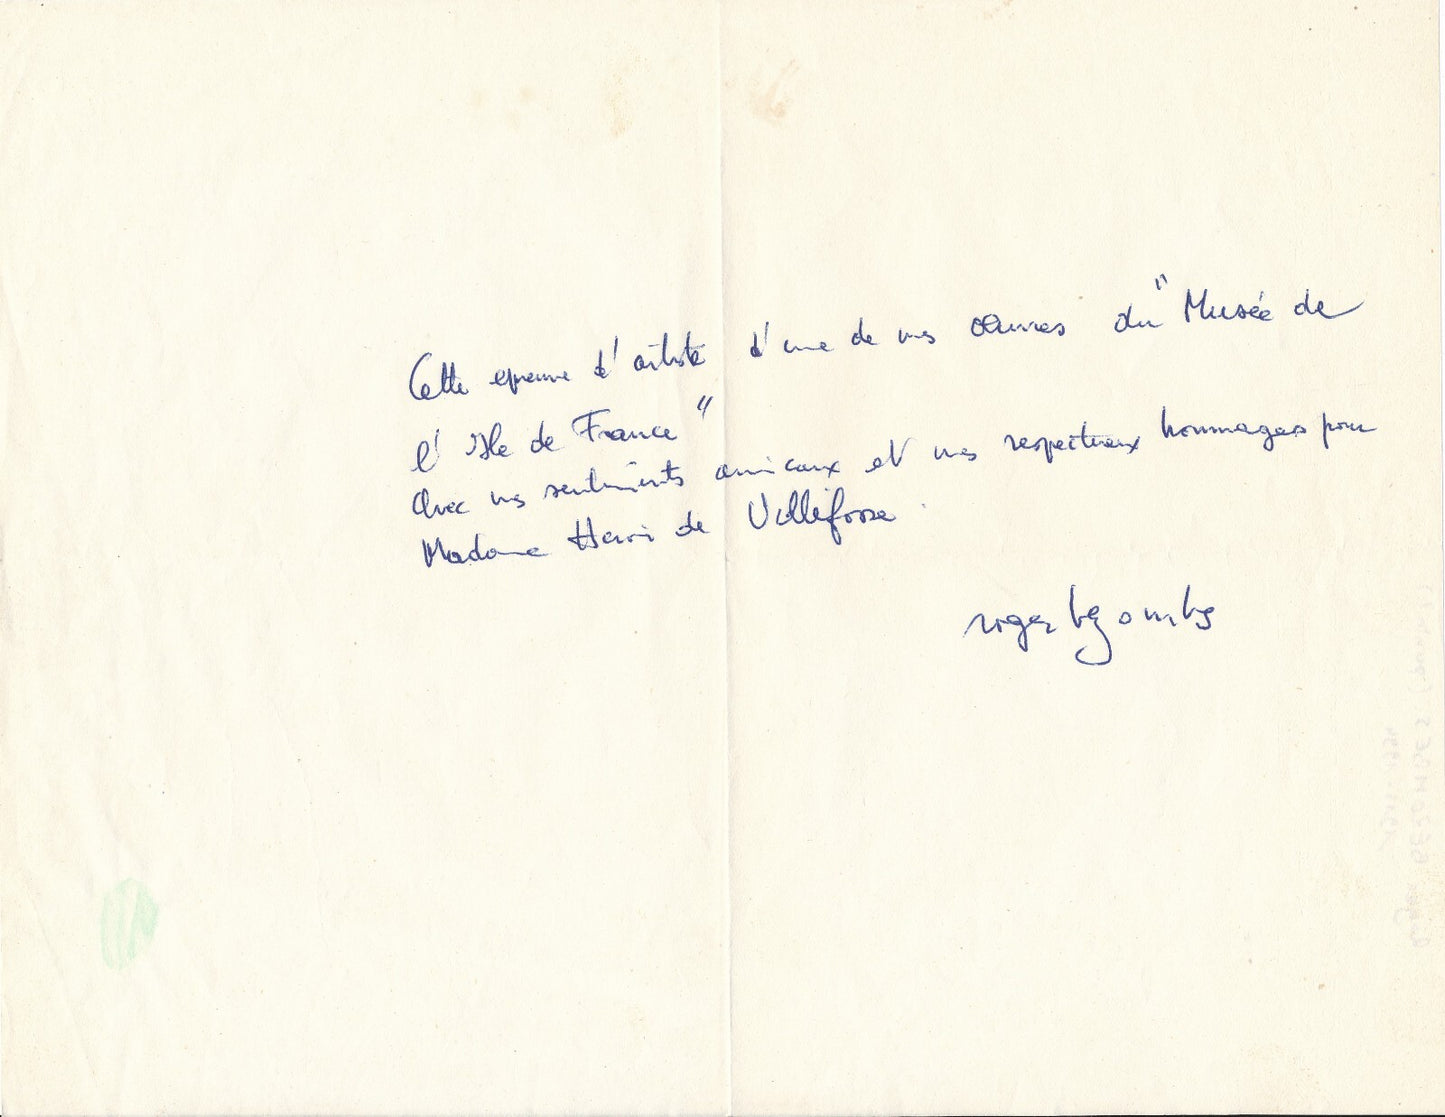 Cette epreuve d'artiste d'une de mes œuvres du "Musée de
l'Isle de France"
Avec mes sentiments amicaux et mes respectueux hommages pour
Madame Heron de Villefosse.
roger bezombes